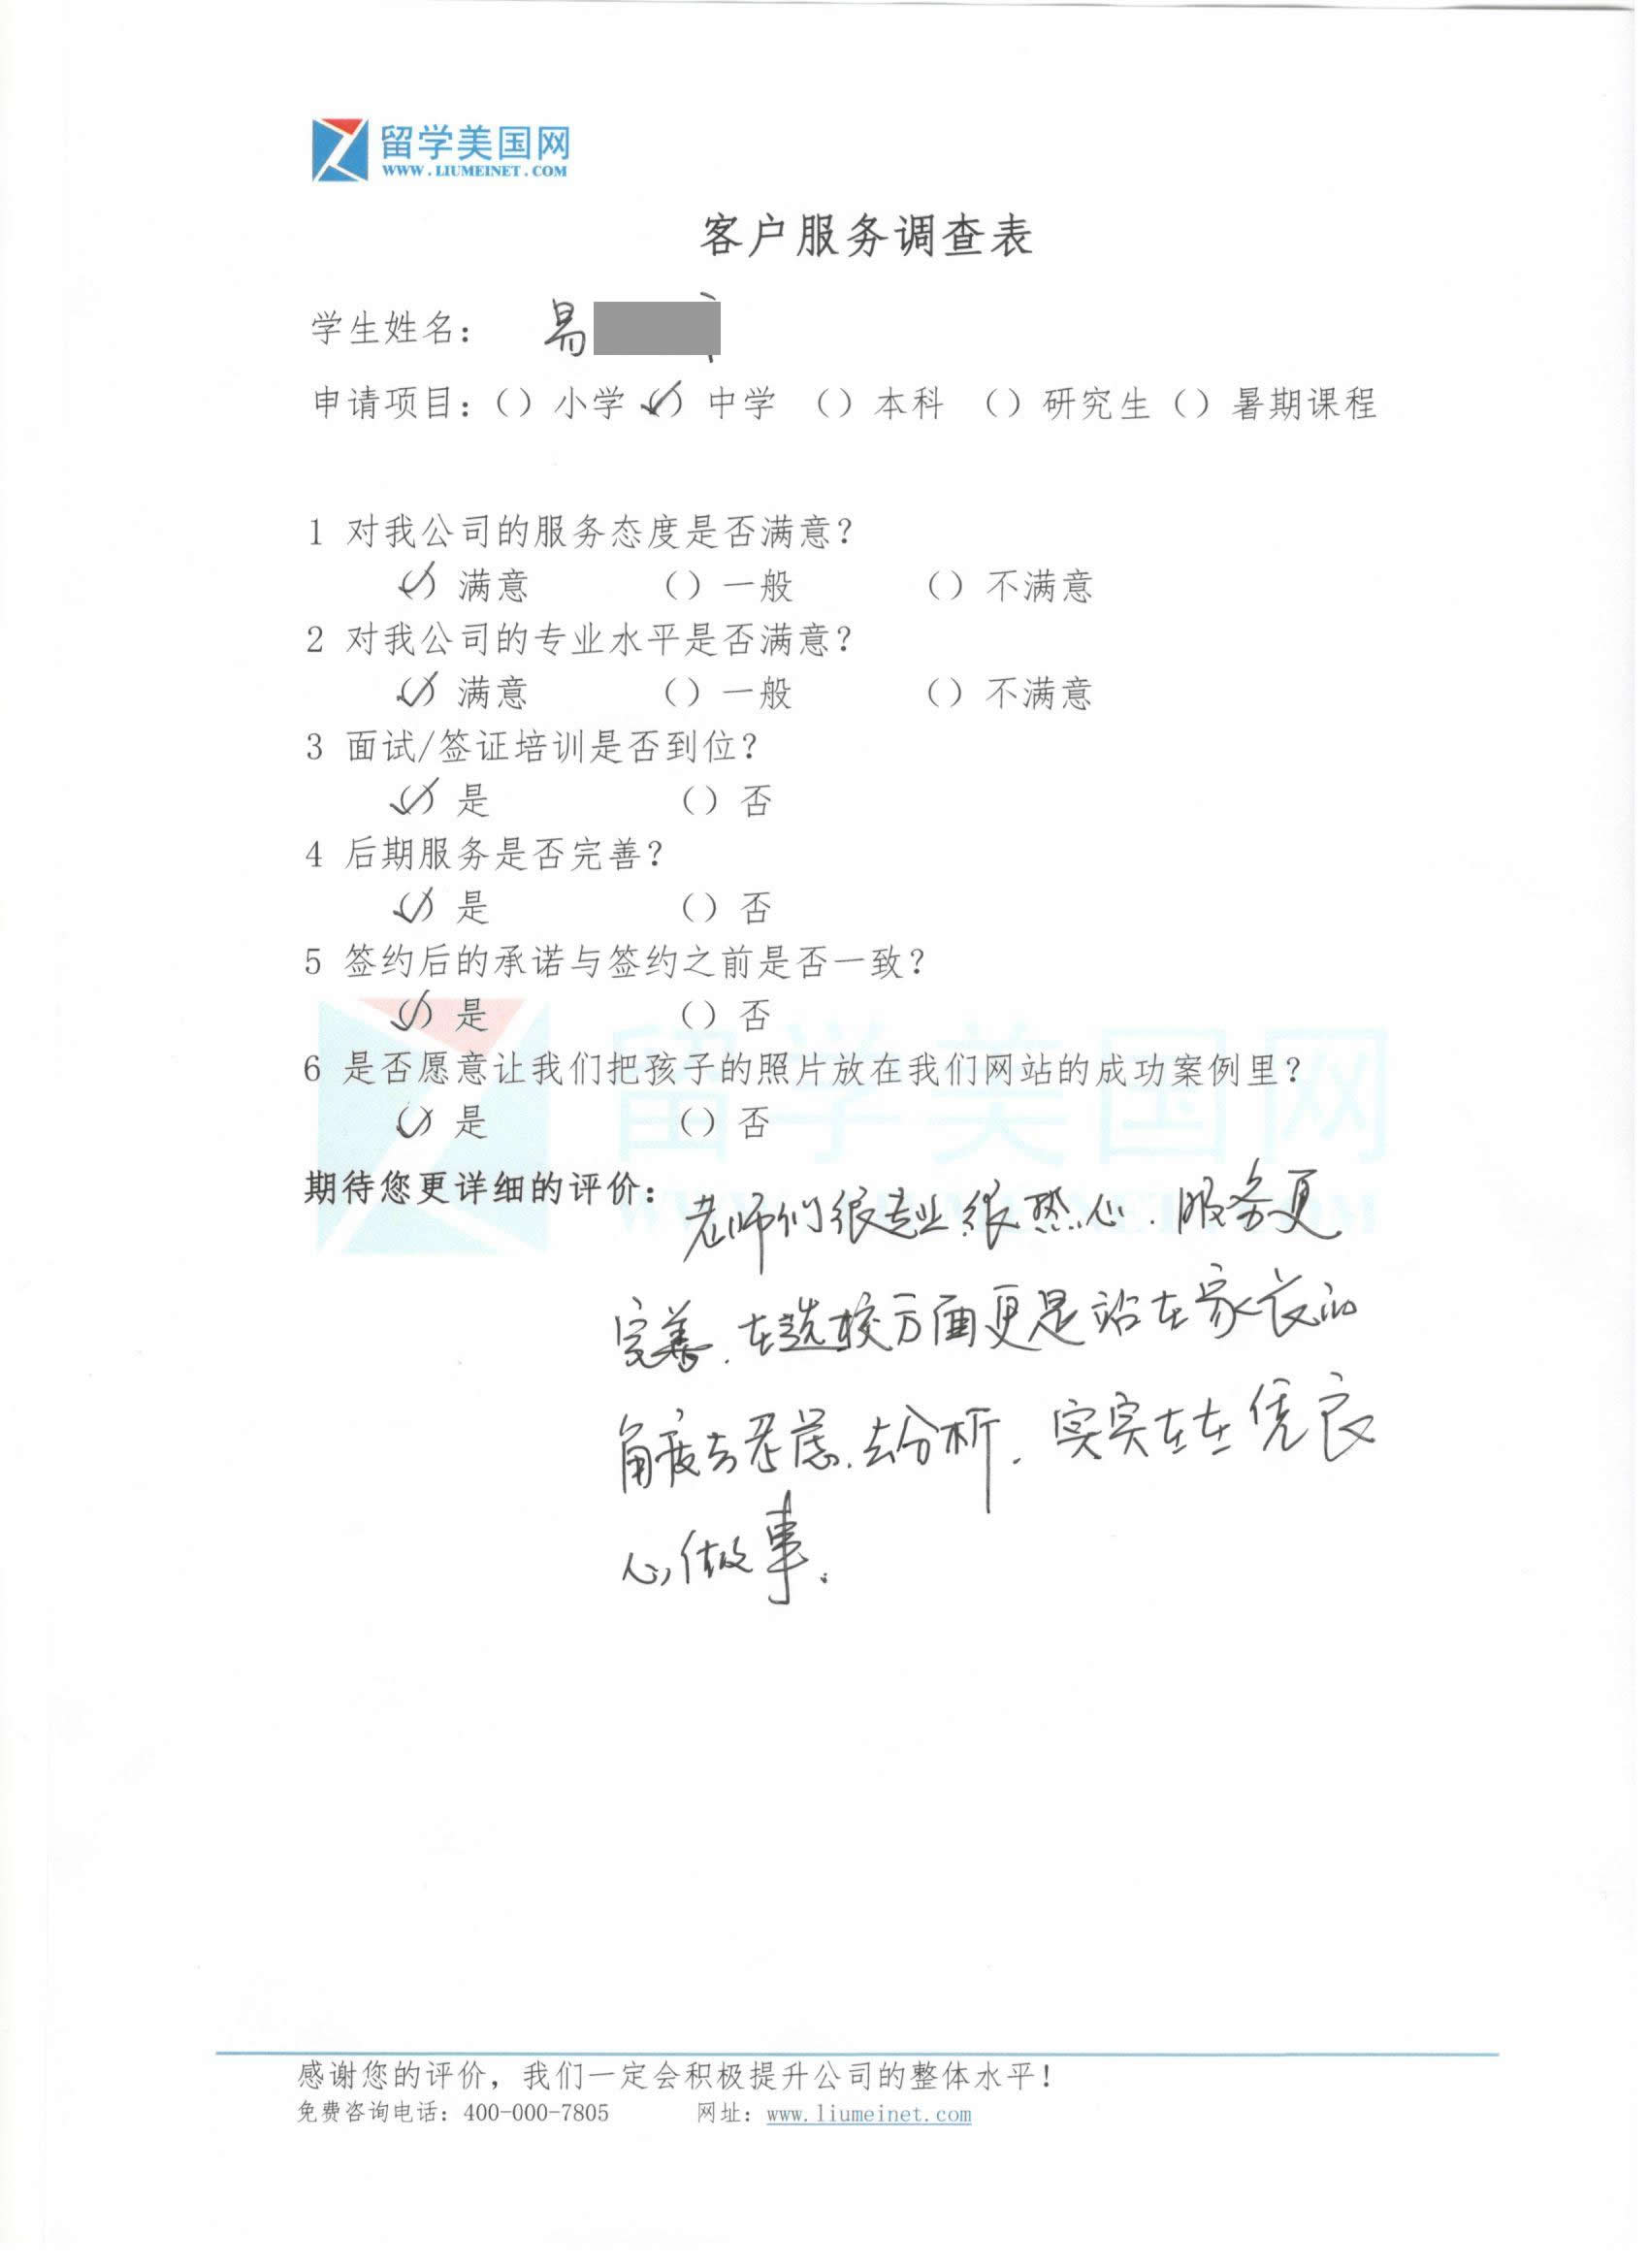 留学美国网
WWW.LIUMEINET.COM
客户服务调查表
学生姓名： 易
申请项目：（）小学（✓）中学（）本科（）研究生（）暑期课程
1 对我公司的服务态度是否满意？
（✓）满意 （）一般 （）不满意
2 对我公司的专业水平是否满意？
（✓）满意 （）一般 （）不满意
3 面试/签证培训是否到位？
（✓）是 （）否
4 后期服务是否完善？
（✓）是 （）否
5 签约后的承诺与签约之前是否一致？
（✓）是 （）否
6 是否愿意让我们把孩子的照片放在我们网站的成功案例里？
（✓）是 （）否
留学美国网
WWW.LIUMEINET.COM
期待您更详细的评价：老师们很专业很热心.服务更
完善.在选校方面更是站在家长的
角度去考虑.去分析.实实在在凭良
心做事.
感谢您的评价，我们一定会积极提升公司的整体水平！
免费咨询电话：400-000-7805 网址：www.liumeinet.com